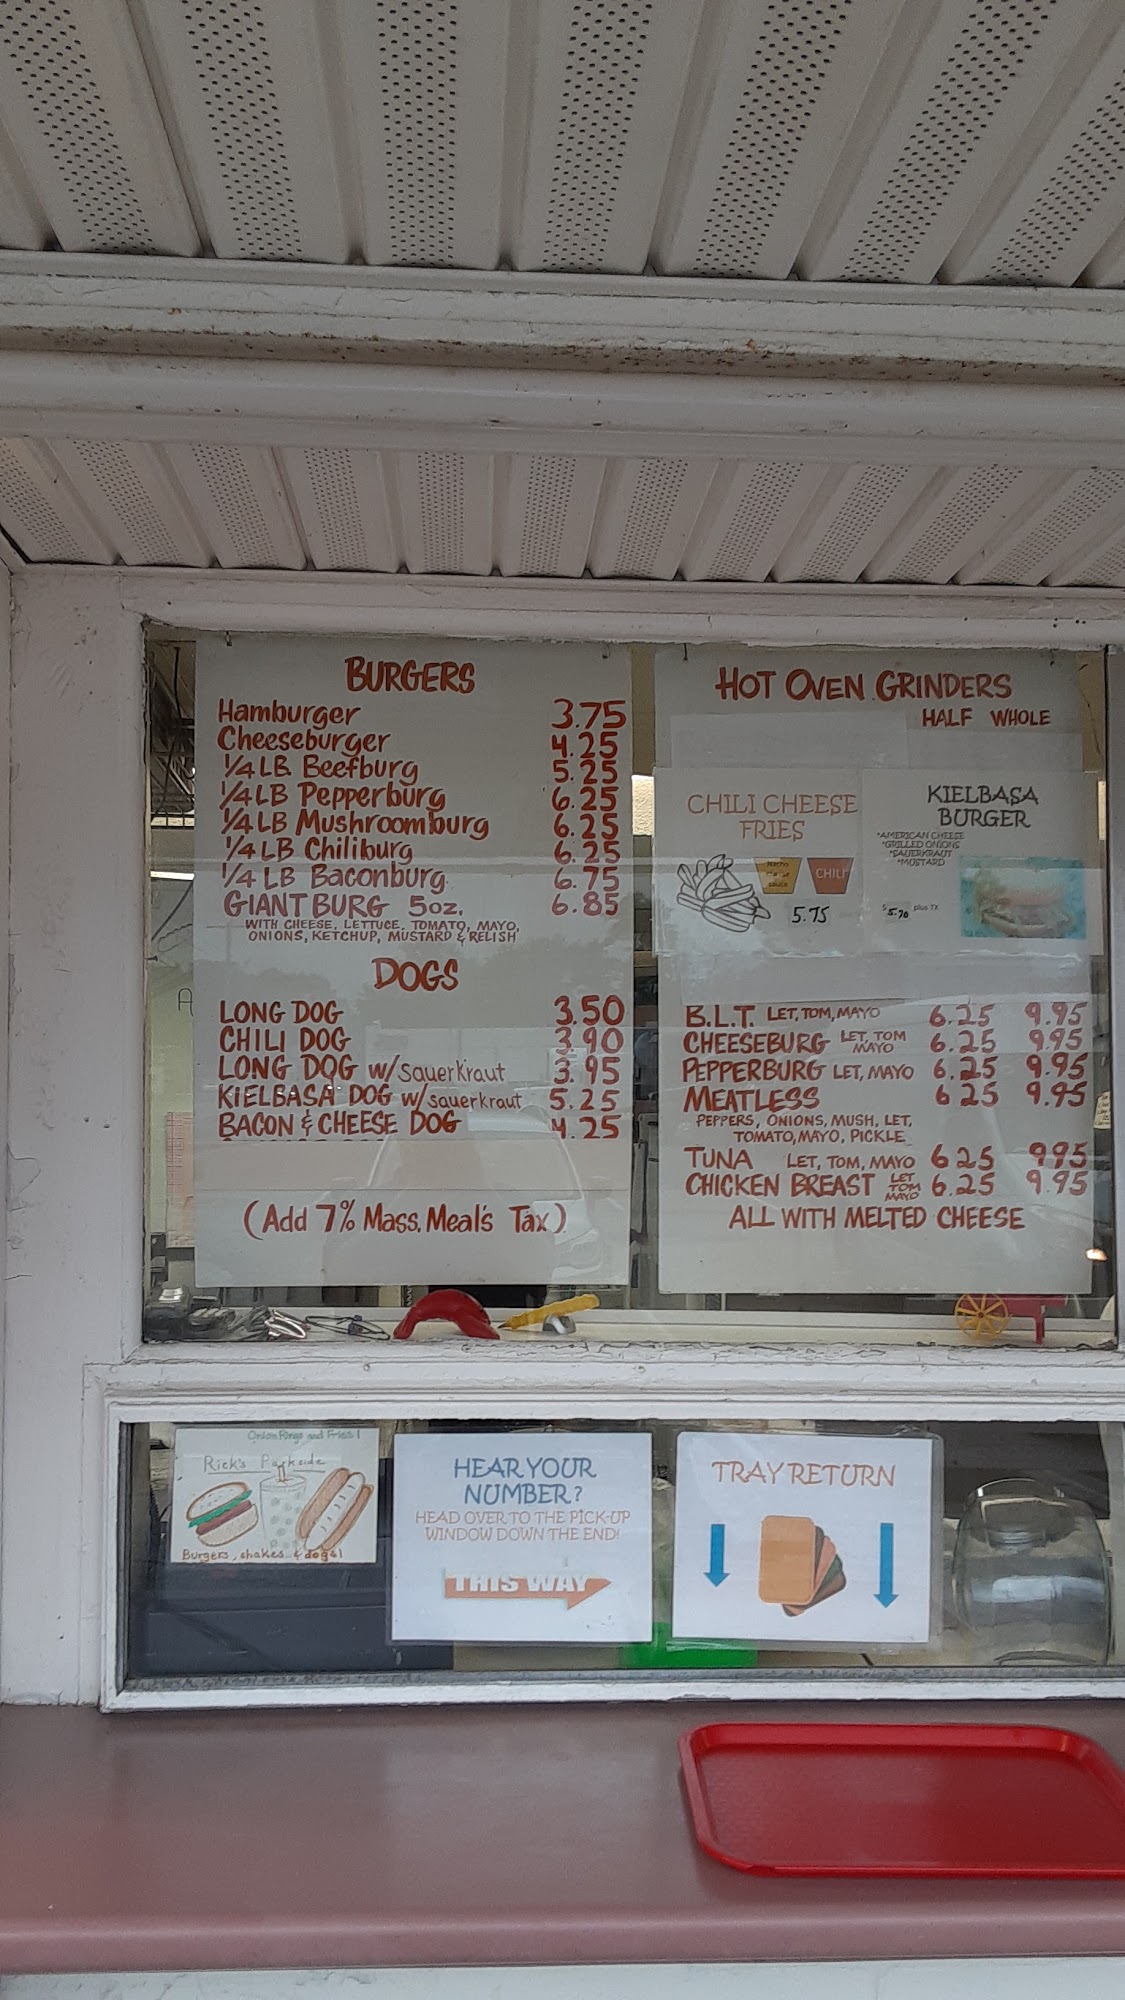 BURGERS
Hamburger 3.75
Cheeseburger 4.25
1/4 LB Beefburg 5.25
1/4 LB Pepperburg 6.25
1/4 LB Mushroomburg 6.25
1/4 LB Chiliburg 6.25
1/4 LB Baconburg 6.75
GIANT BURG 5oz. 6.85
WITH CHEESE, LETTUCE, TOMATO, MAYO,
ONIONS, KETCHUP, MUSTARD & RELISH
DOGS
LONG DOG 3.50
CHILI DOG 3.90
LONG DOG w/sauerkraut 3.95
KIELBASA DOG w/sauerkraut 5.25
BACON & CHEESE DOG 4.25
(Add 7% Mass. Meal's Tax)
HOT OVEN GRINDERS
HALF WHOLE
CHILI CHEESE
FRIES
CHILI
5.75
KIELBASA
BURGER
*AMERICAN CHEESE
*GRILLED ONIONS
*SAUERKRAUT
*MUSTARD
$5.70 plus TX
B.L.T. LET, TOM, MAYO 6.25 9.95
CHEESEBURG LET, TOM MAYO 6.25 9.95
PEPPERBURG LET, MAYO 6.25 9.95
MEATLESS 6 25 9.95
PEPPERS, ONIONS, MUSH, LET,
TOMATO, MAYO, PICKLE
TUNA LET, TOM, MAYO 6 25 9 95
CHICKEN BREAST LET TOM MAYO 6.25 9.95
ALL WITH MELTED CHEESE
Onion Rings and Fries!
Rick's Parkside
Burgers, shakes & dogs!
HEAR YOUR
NUMBER?
HEAD OVER TO THE PICK-UP
WINDOW DOWN THE END!
THIS WAY
TRAY RETURN